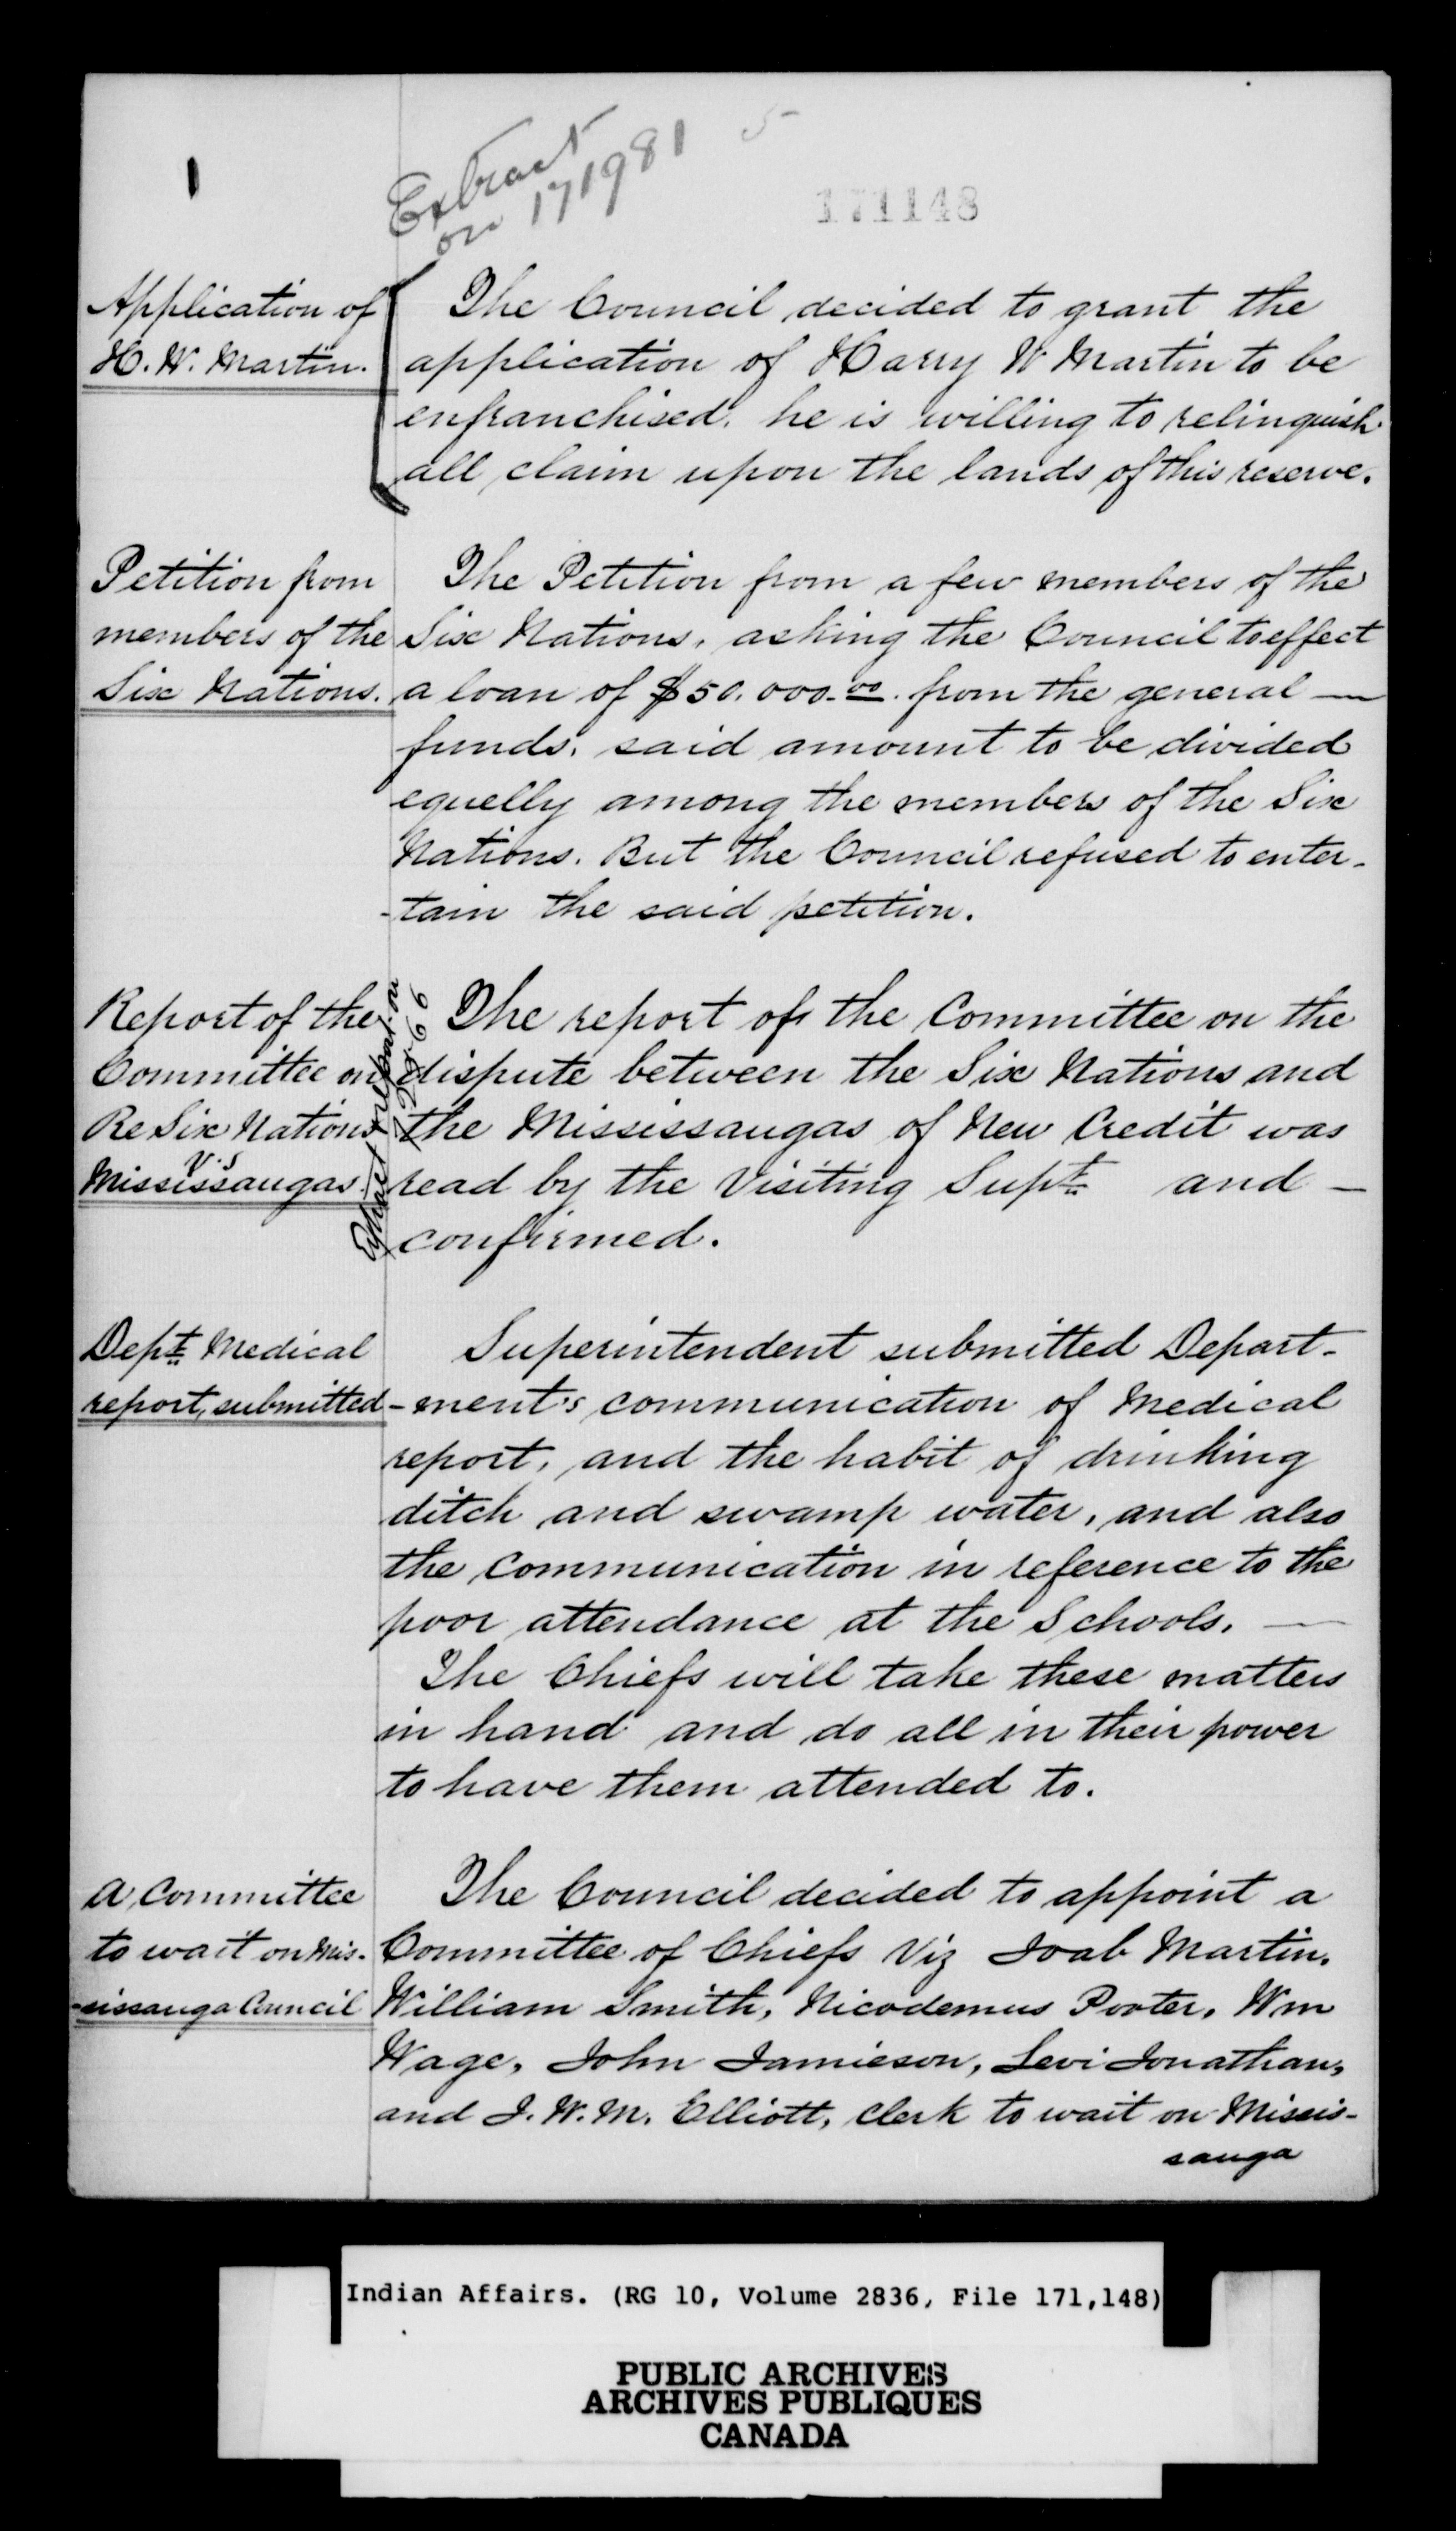 Extract
on 171981
5
1
171148
Application of
H. W. Martin.
The Council decided to grant the
application of Harry W Martin to be
enfranchised. he is willing to relinquish
all claim upon the lands of this reserve.
Petition from
members of the
Six Nations.
The Petition from a few members of the
Six Nations, asking the Council to effect
a loan of $50.000.00. from the general —
funds. said amount to be divided
equelly among the members of the Six
Nations. But the Council refused to enter-
-tain the said petition.
Report of the
Committee on
Re Six Nations
V.S
Mississaugas.
The report of the Committee on the
dispute between the Six Nations and
the Mississaugas of New Credit was
read by the Visiting Supt. and —
confirmed.
Dept. Medical
report, submitted
Superintendent submitted Depart-
-ment's communication of Medical
report, and the habit of drinking
ditch and swamp water, and also
the communication in reference to the
poor attendance at the Schools. —
The Chiefs will take these matters
in hand and do all in their power
to have them attended to.
A Committee
to wait on Mis-
-sissauga Council
The Council decided to appoint a
Committee of Chiefs Viz Joab Martin.
William Smith, Nicodemus Porter, Wm
Wage, John Jamieson, Levi Jonathan,
and J. W. M. Elliott, clerk to wait on Missis-
sauga
Indian Affairs. (RG 10, Volume 2836, File 171,148)
PUBLIC ARCHIVES
ARCHIVES PUBLIQUES
CANADA